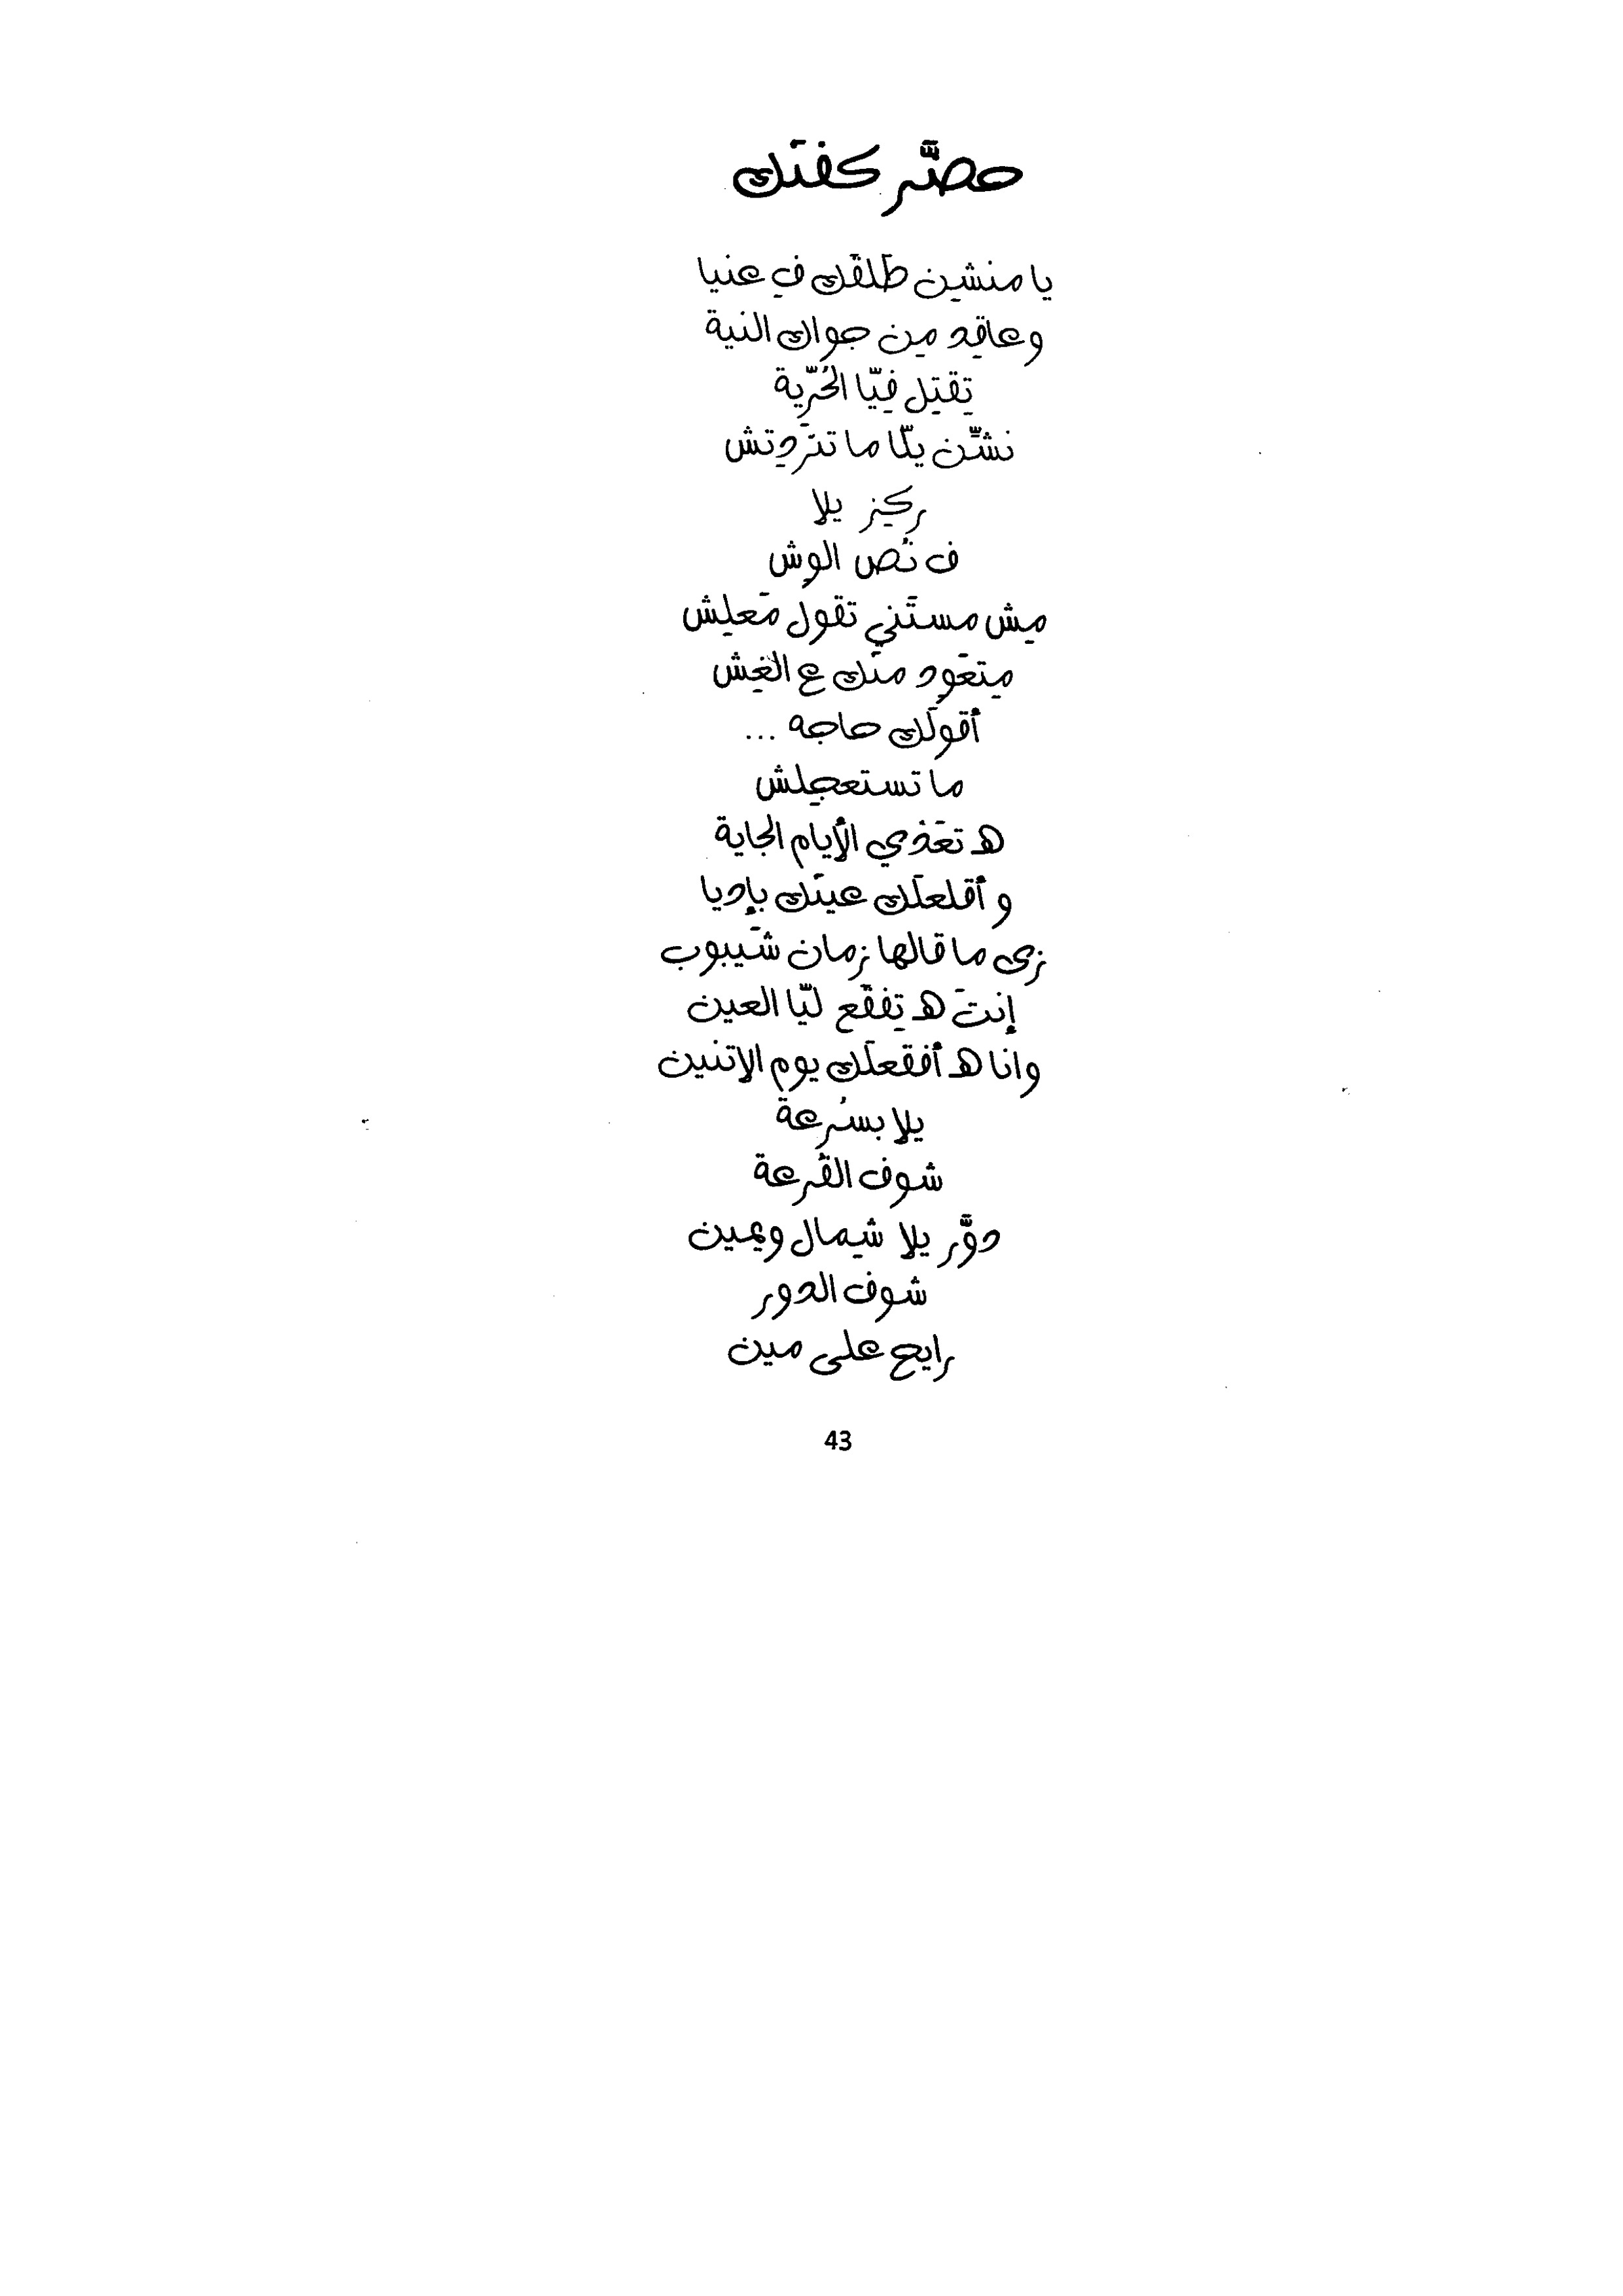 حضَّر كفنَك
يا منشين طلقَك فِ عنيا
وعاقِد مِن جواك النية
تِقتِل فِيّا الحُرِّية
نشِّن يلّا ما تتردِتش
ركِز يلا
ف نُص الوِش
مِش مستَني تقول مَعلِش
مِتعَوِد منَّك ع الغِش
أقولَك حاجه ...
ما تستعجِلش
هـ تعَدي الأيام الجاية
و أقلعلَك عينَك بإديا
زى ما قالها زمان شَيبوب
إنتَ هـ تِفقَع ليّا العين
وانا هـ أفقعلَك يوم الاتنين
يلا بسُرعة
شوف القُرعة
دوَّر يلا شِمال ويمين
شوف الدور
رايح على مين
43